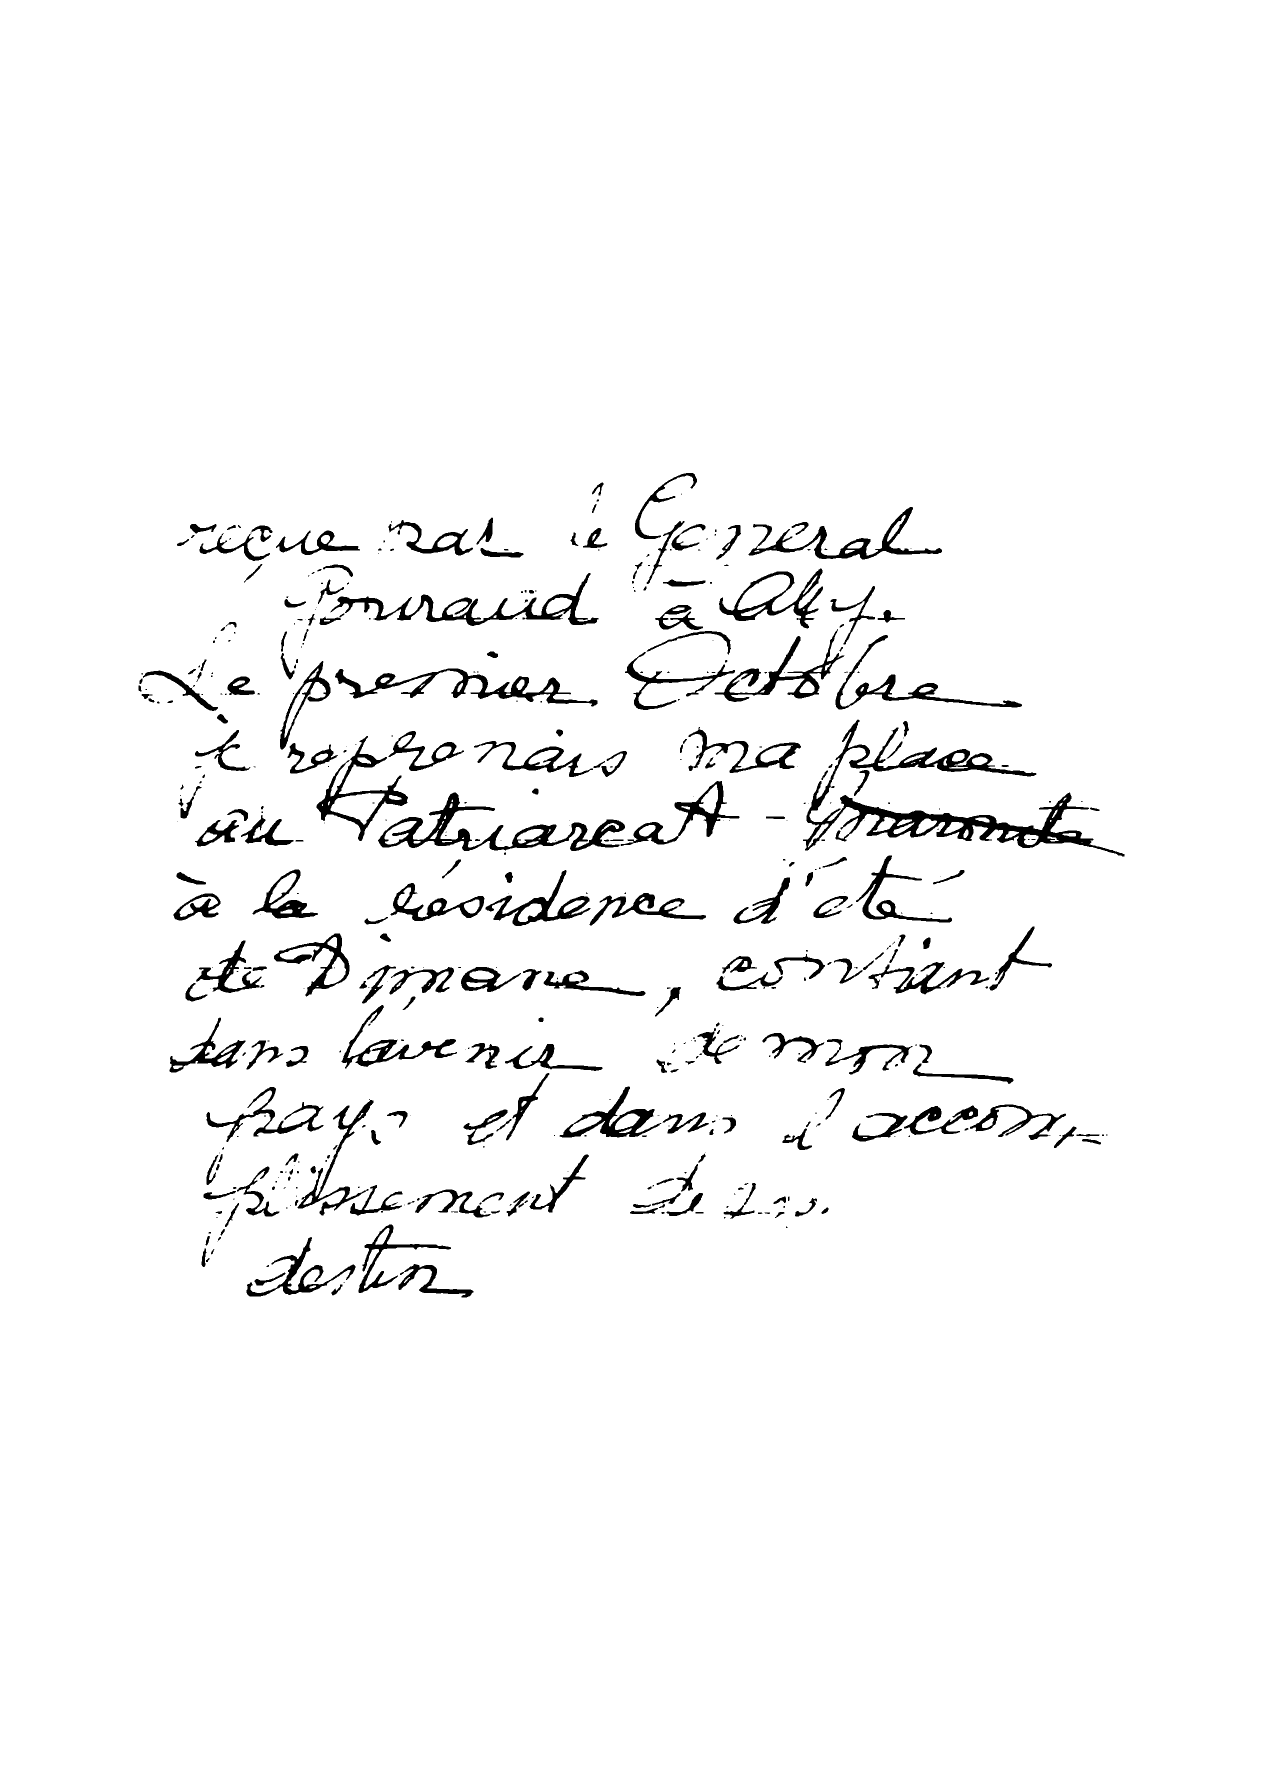 reçue par le Général
Gouraud à Aley.
Le premier Octobre
je reprenais ma place
au Patriarcat - maronite
à la résidence d'été
de Dimane, confiant
dans l'avenir de mon
pays et dans l'accom-
plissement de son
destin